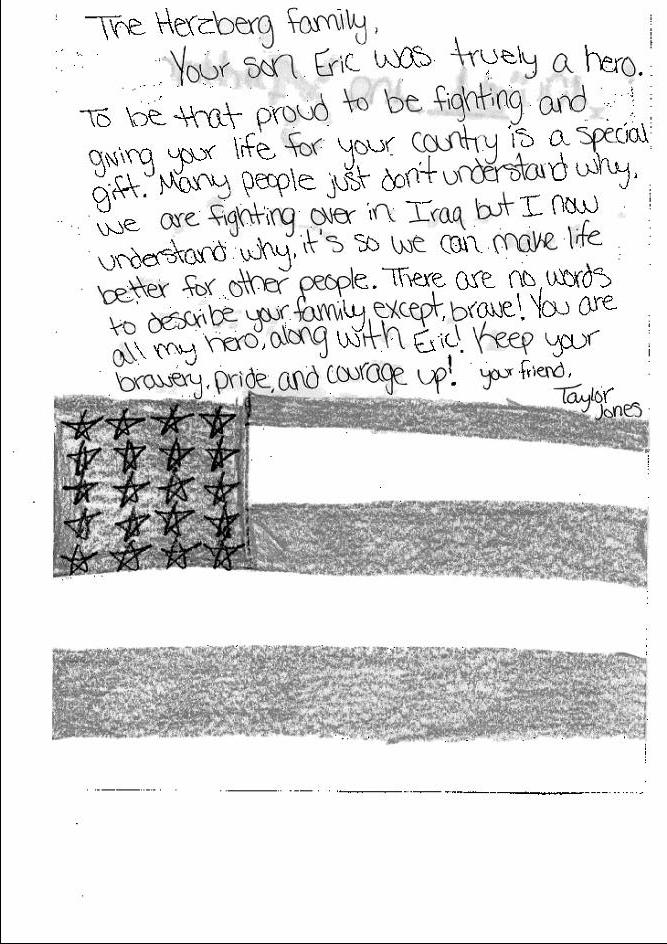 The Herzberg family,
Your son Eric was truely a hero.
To be that proud to be fighting and
giving your life for your country is a special
gift. Many people just don't understand why,
we are fighting over in Iraq but I now
understand why, it's so we can make life
better for other people. There are no words
to describe your family except, brave! You are
all my hero, along with Eric! Keep your
bravery, pride, and courage up! your friend,
Taylor
Jones